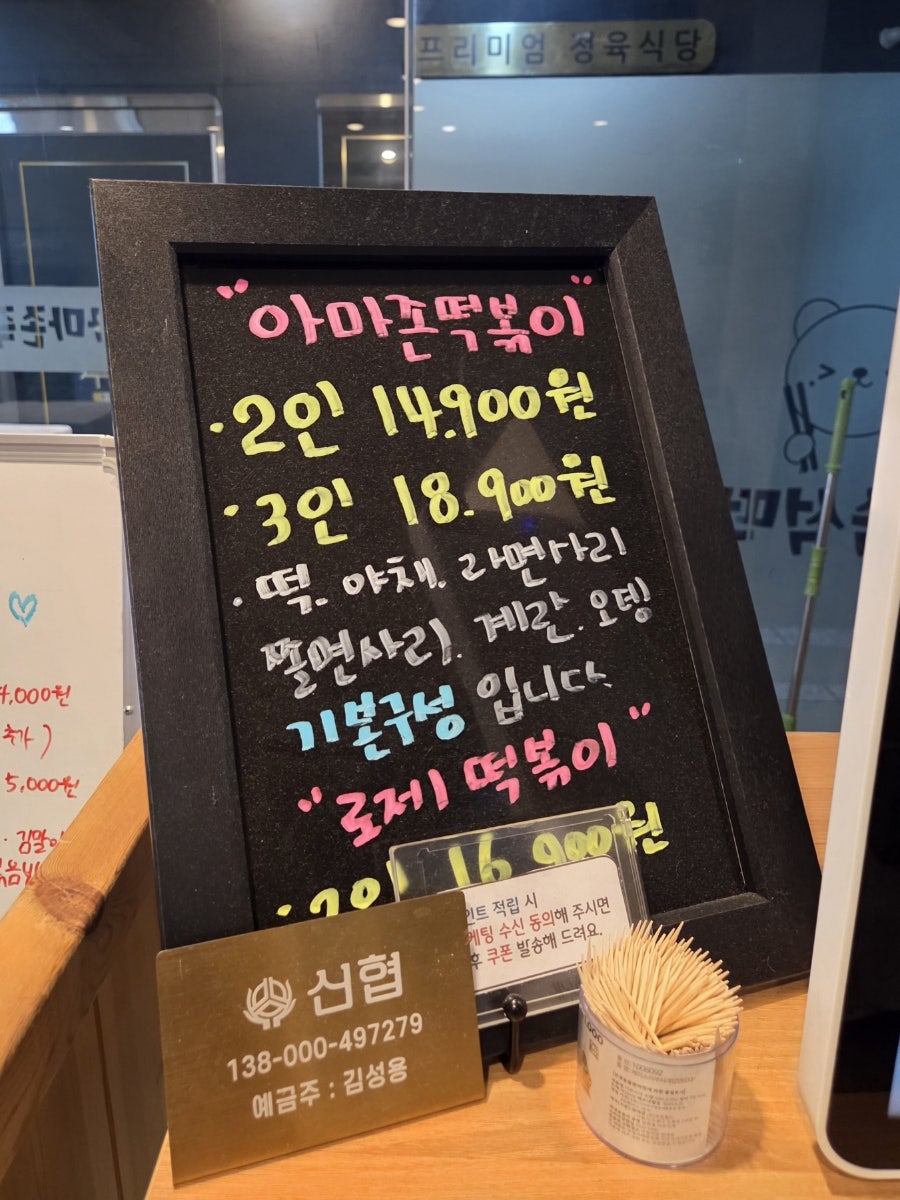 프리미엄 정육식당
"아마존떡볶이"
·2인 14.900원
·3인 18.900원
·떡. 야채. 라면사리
쫄면사리. 계란. 오뎅
기본구성 입니다
"로제 떡볶이"
·2인 16.900원
적립 시
수신 동의해 주시면
쿠폰 발송해 드려요.
신협
138-000-497279
예금주 : 김성용
4,000원
추가)
5,000원
1006092